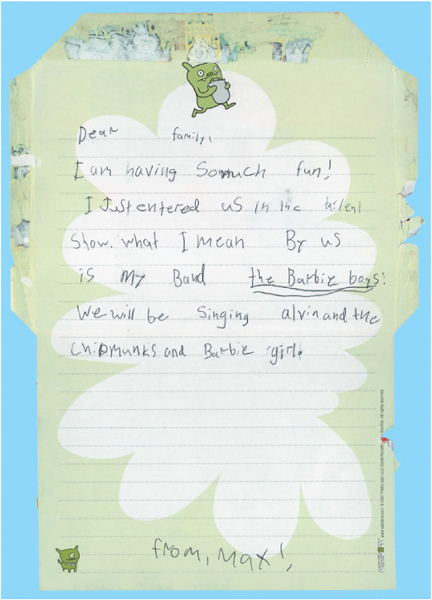 Dear family,
I am having Somuch fun!
I Just entered us in the talent
Show. what I mean By us
is my Band the Barbie boys!
We will be Singing alvin and the
Chipmunks and Barbie girl.
from, Max!,